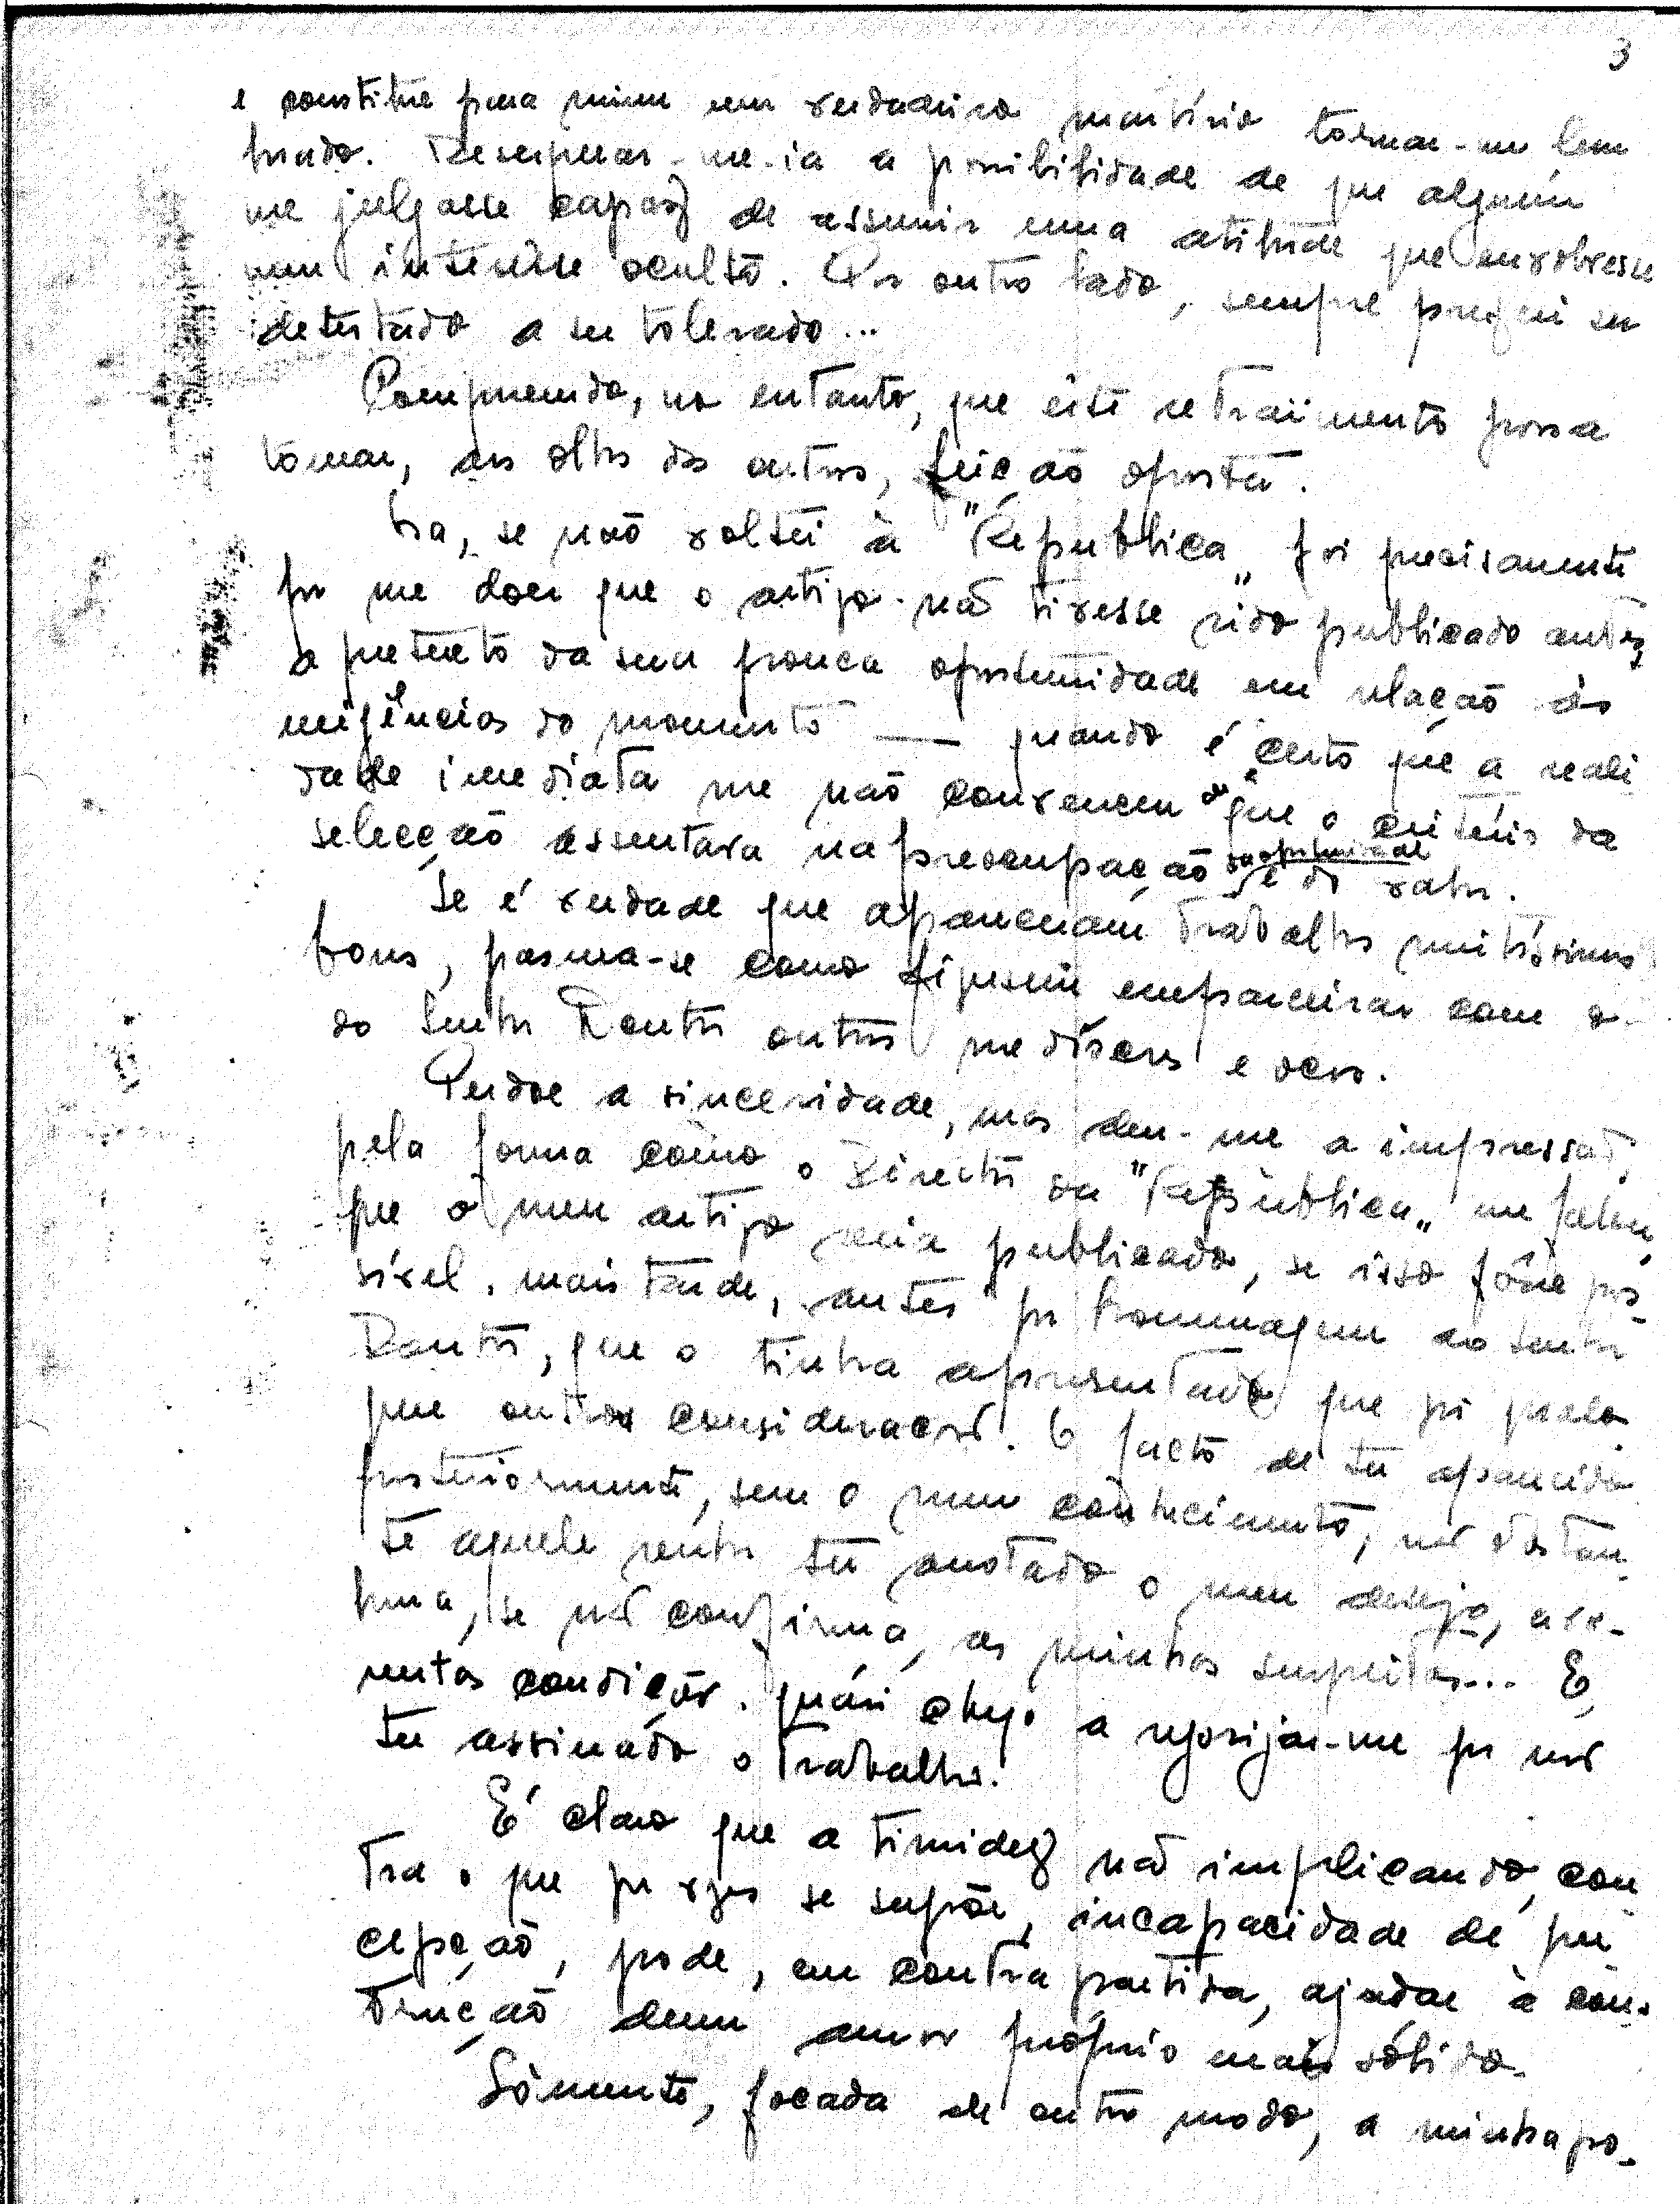 3
e constitue para mim um verdadeiro martírio tornar-me lem
brado. Desesperar-me-ia a possibilidade de que alguém
me julgasse capaz de assumir uma atitude que envolvesse
num interesse oculto. Por outro lado, sempre preferi ser
detestado a ser tolerado...
Compreendo, no entanto, que êste retraimento possa
tomar, aos olhos dos outros, feição oposta.
Ora, se não voltei à "República" foi precisamente
por me doer que o artigo não tivesse sido publicado antes,
a pretexto da sua pouca oportunidade em relação às
exigências do momento — quando é certo que a reali
dade imediata me não convenceu de que o critério da
selecção assentava na preocupação da oportunidade e do valor.
Se é verdade que apareceram trabalhos muitíssimo
bons, pasma-se como fizeram emparceirar com o
do Senhor Doutor outros medíocres e ocos.
Perdoe a sinceridade, mas deu-me a impressão,
pela forma como o Director da "República" me falou,
que o meu artigo seria publicado, se isso fôsse pos
sível, mais tarde, antes por homenagem ao Senhor
Doutor, que o tinha apresentado que por qual
quer outra consideração. O facto de ter aparecido
posteriormente, sem o meu conhecimento, não obstan
te aquele senhor ter anotado o meu desejo,
se não confirma, as minhas suspeitas... E,
nestas condições, quási chego a regosijar-me por não
ter assinado o trabalho.
É claro que a timidez não implicando, con
tra o que por vezes se supõe, incapacidade de per
cepção, pode, em contra partida, ajudar à cons
trução dum amor próprio mais sólido.
Sòmente, focada de outro modo, a minha po-